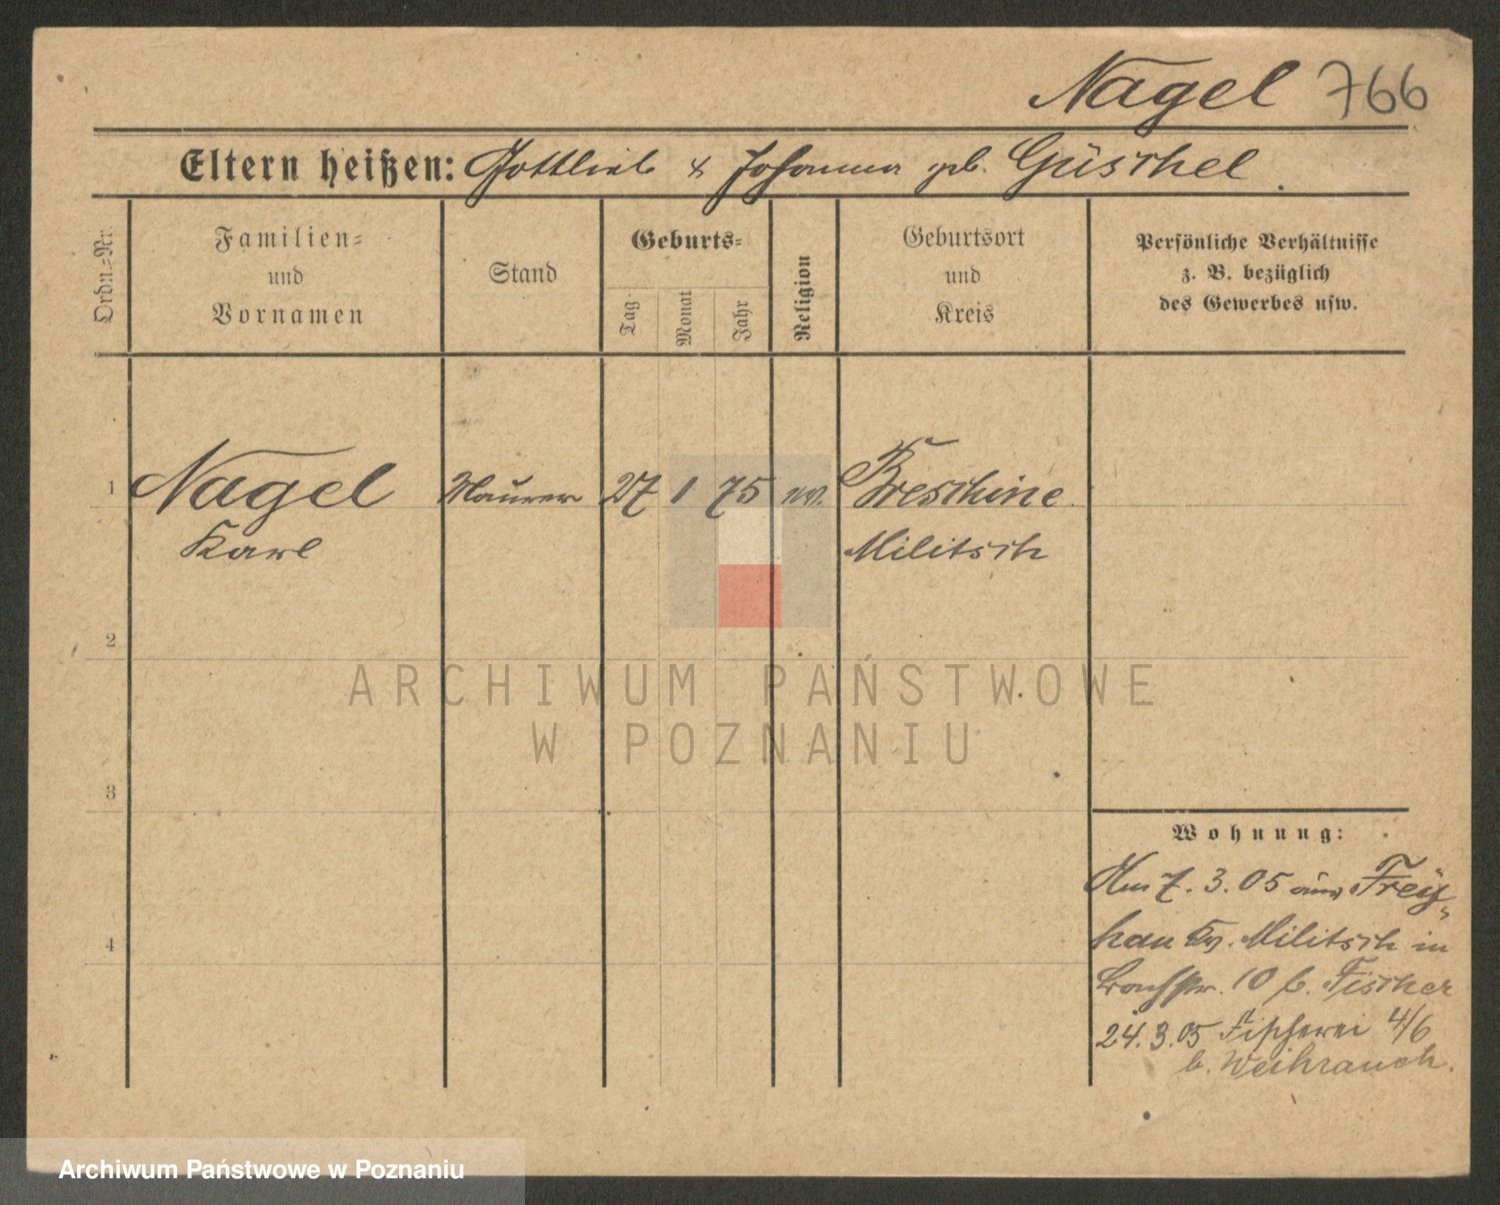 Nagel 766
Eltern heißen: Gottlieb & Johanna geb. Güschel.
Ordn.=Nr.
Familien=
und
Vornamen
Stand
Geburts=
Tag
Monat
Jahr
Religion
Geburtsort
und
Kreis
Persönliche Verhältnisse
z. B. bezüglich
des Gewerbes usw.
1 Nagel Maurer 27 1 75 ev. Breschine
Karl Militsch
2
ARCHIWUM PAŃSTWOWE
W POZNANIU
3
Wohnung:
Am 7. 3. 05 aus Frey=
4 han Kr. Militsch in
10 b. Fischer
24. 3. 05 Fischerei 4/6
b. Weihrauch.
Archiwum Państwowe w Poznaniu